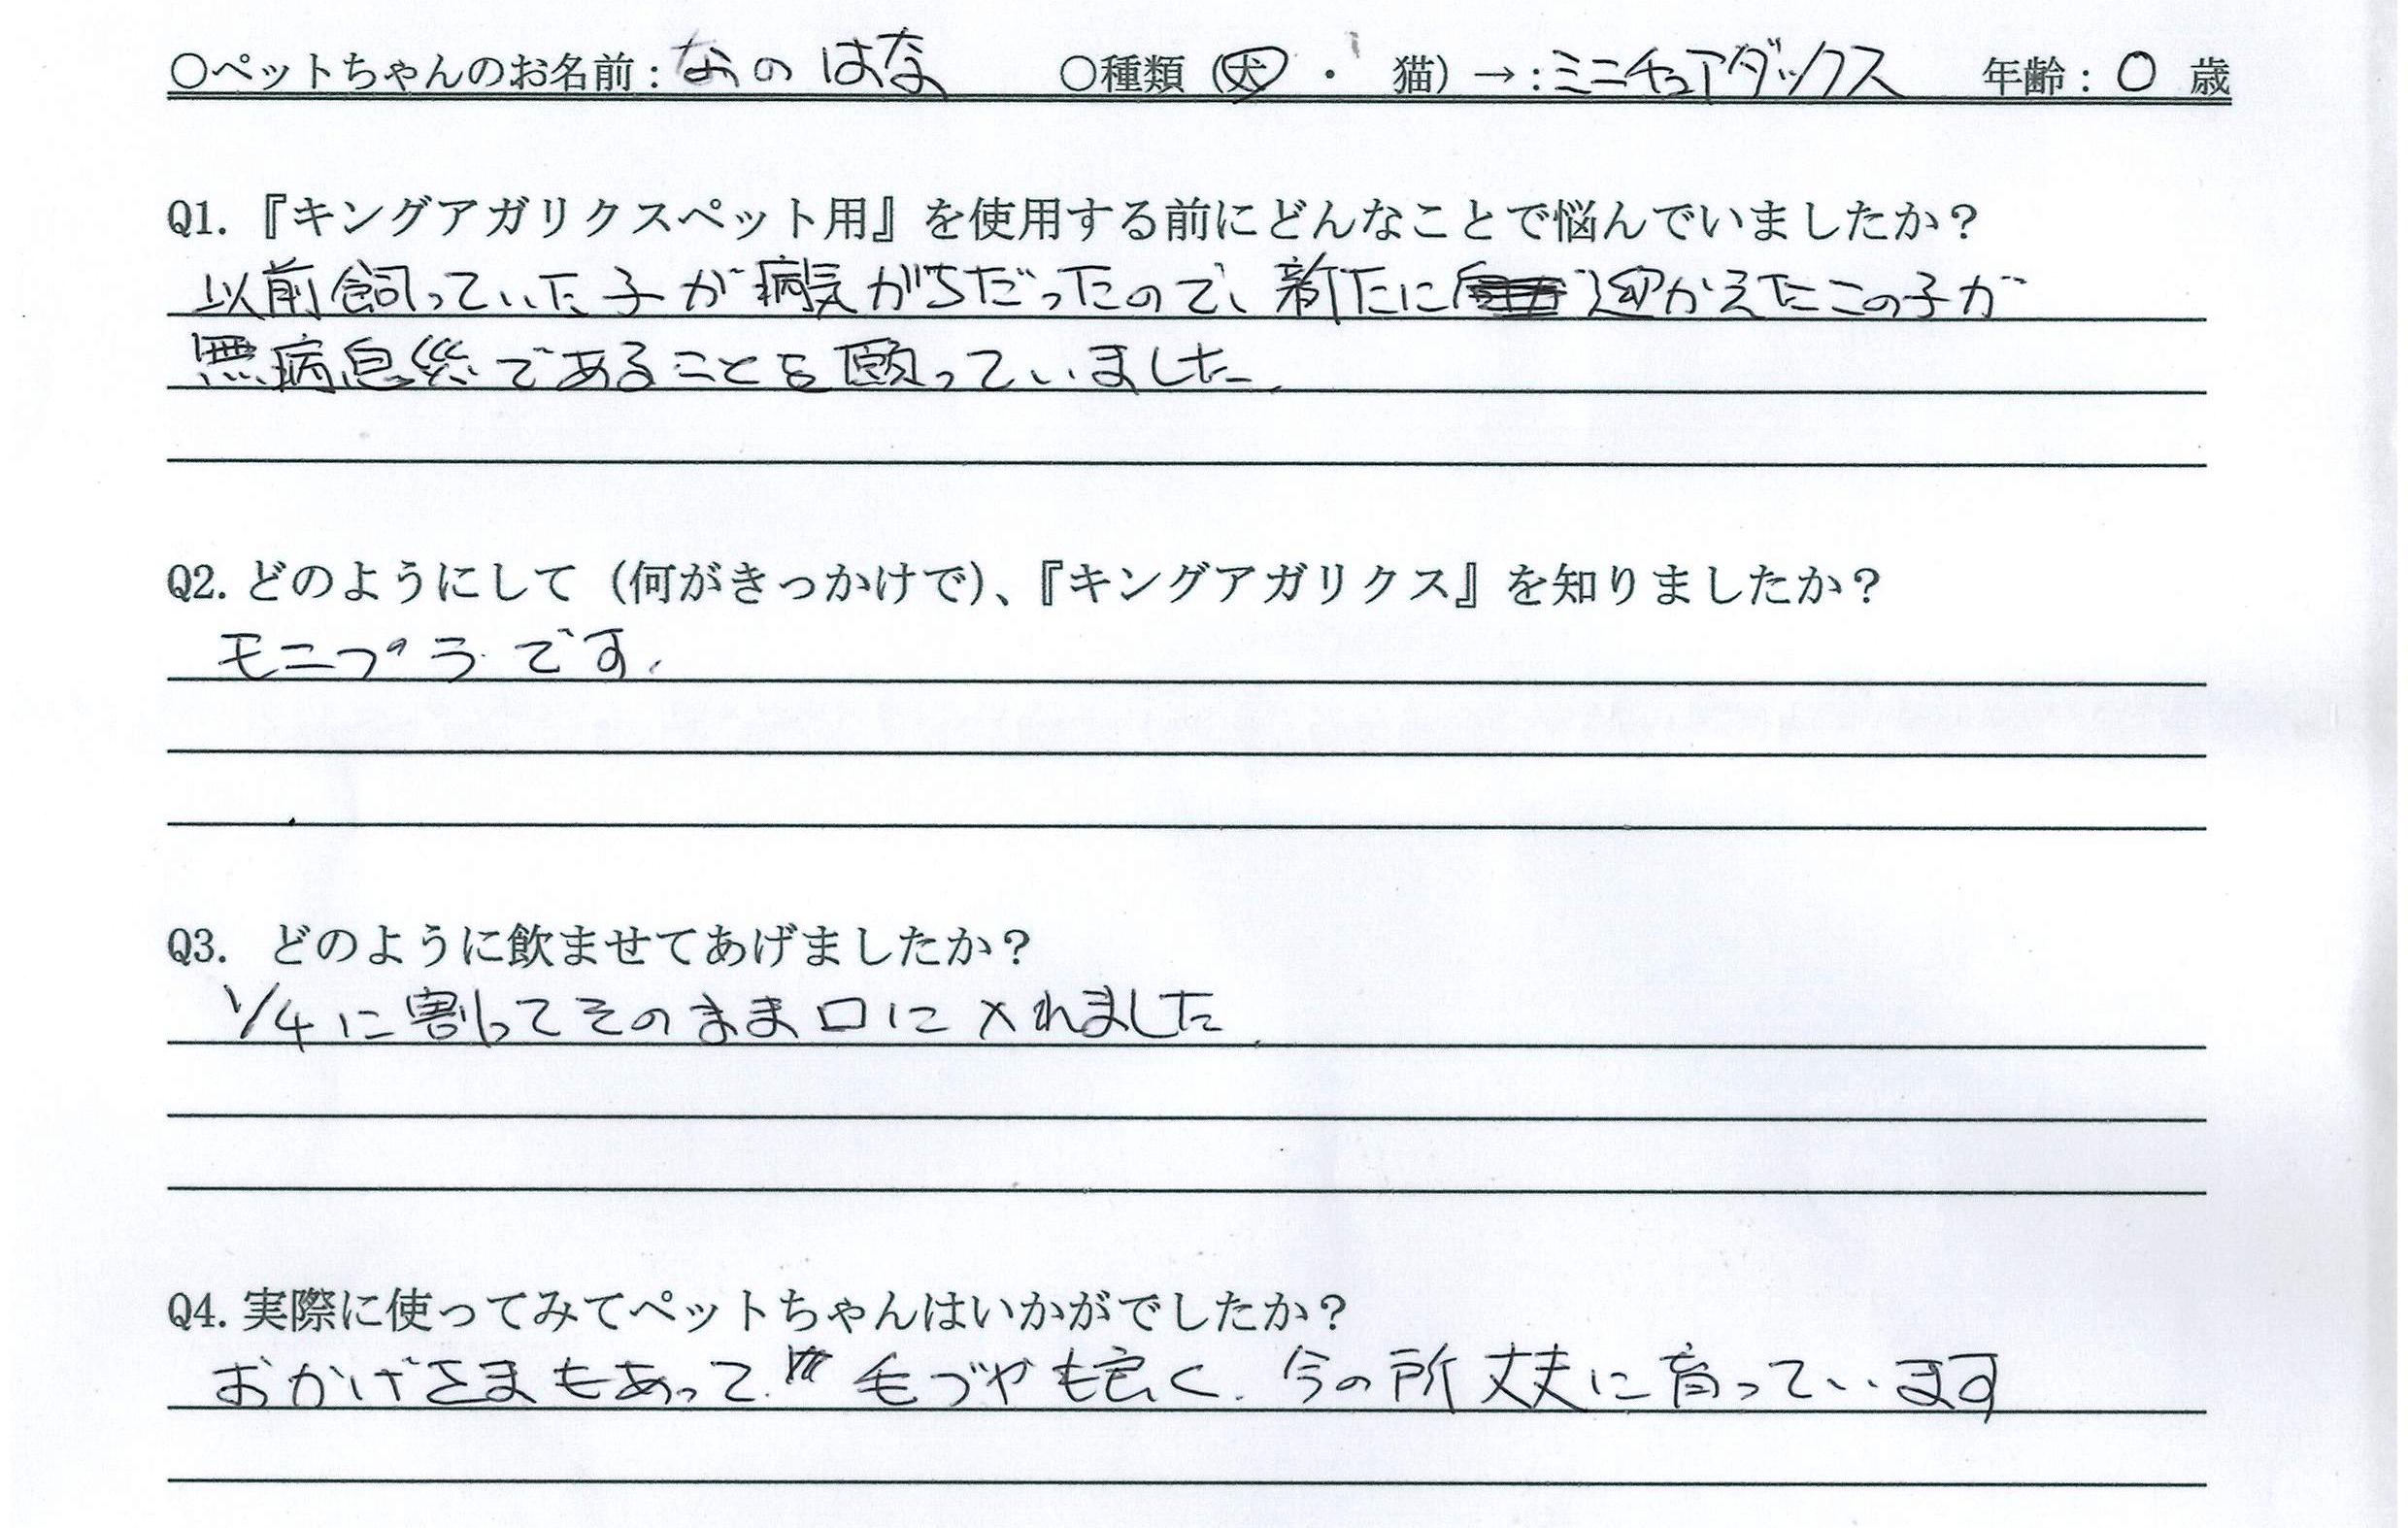 ○ペットちゃんのお名前：なのはな ○種類（犬・猫）→：ミニチュアダックス 年齢：0歳
Q1.『キングアガリクスペット用』を使用する前にどんなことで悩んでいましたか？
以前飼っていた子が病気がちだったので、新たに迎かえたこの子が
無病息災であることを願っていました。
Q2.どのようにして（何がきっかけで）、『キングアガリクス』を知りましたか？
モニプラです。
Q3. どのように飲ませてあげましたか？
1/4に割ってそのまま口に入れました。
Q4.実際に使ってみてペットちゃんはいかがでしたか？
おかげさまもあって、毛づやも良く、今の所丈夫に育っています